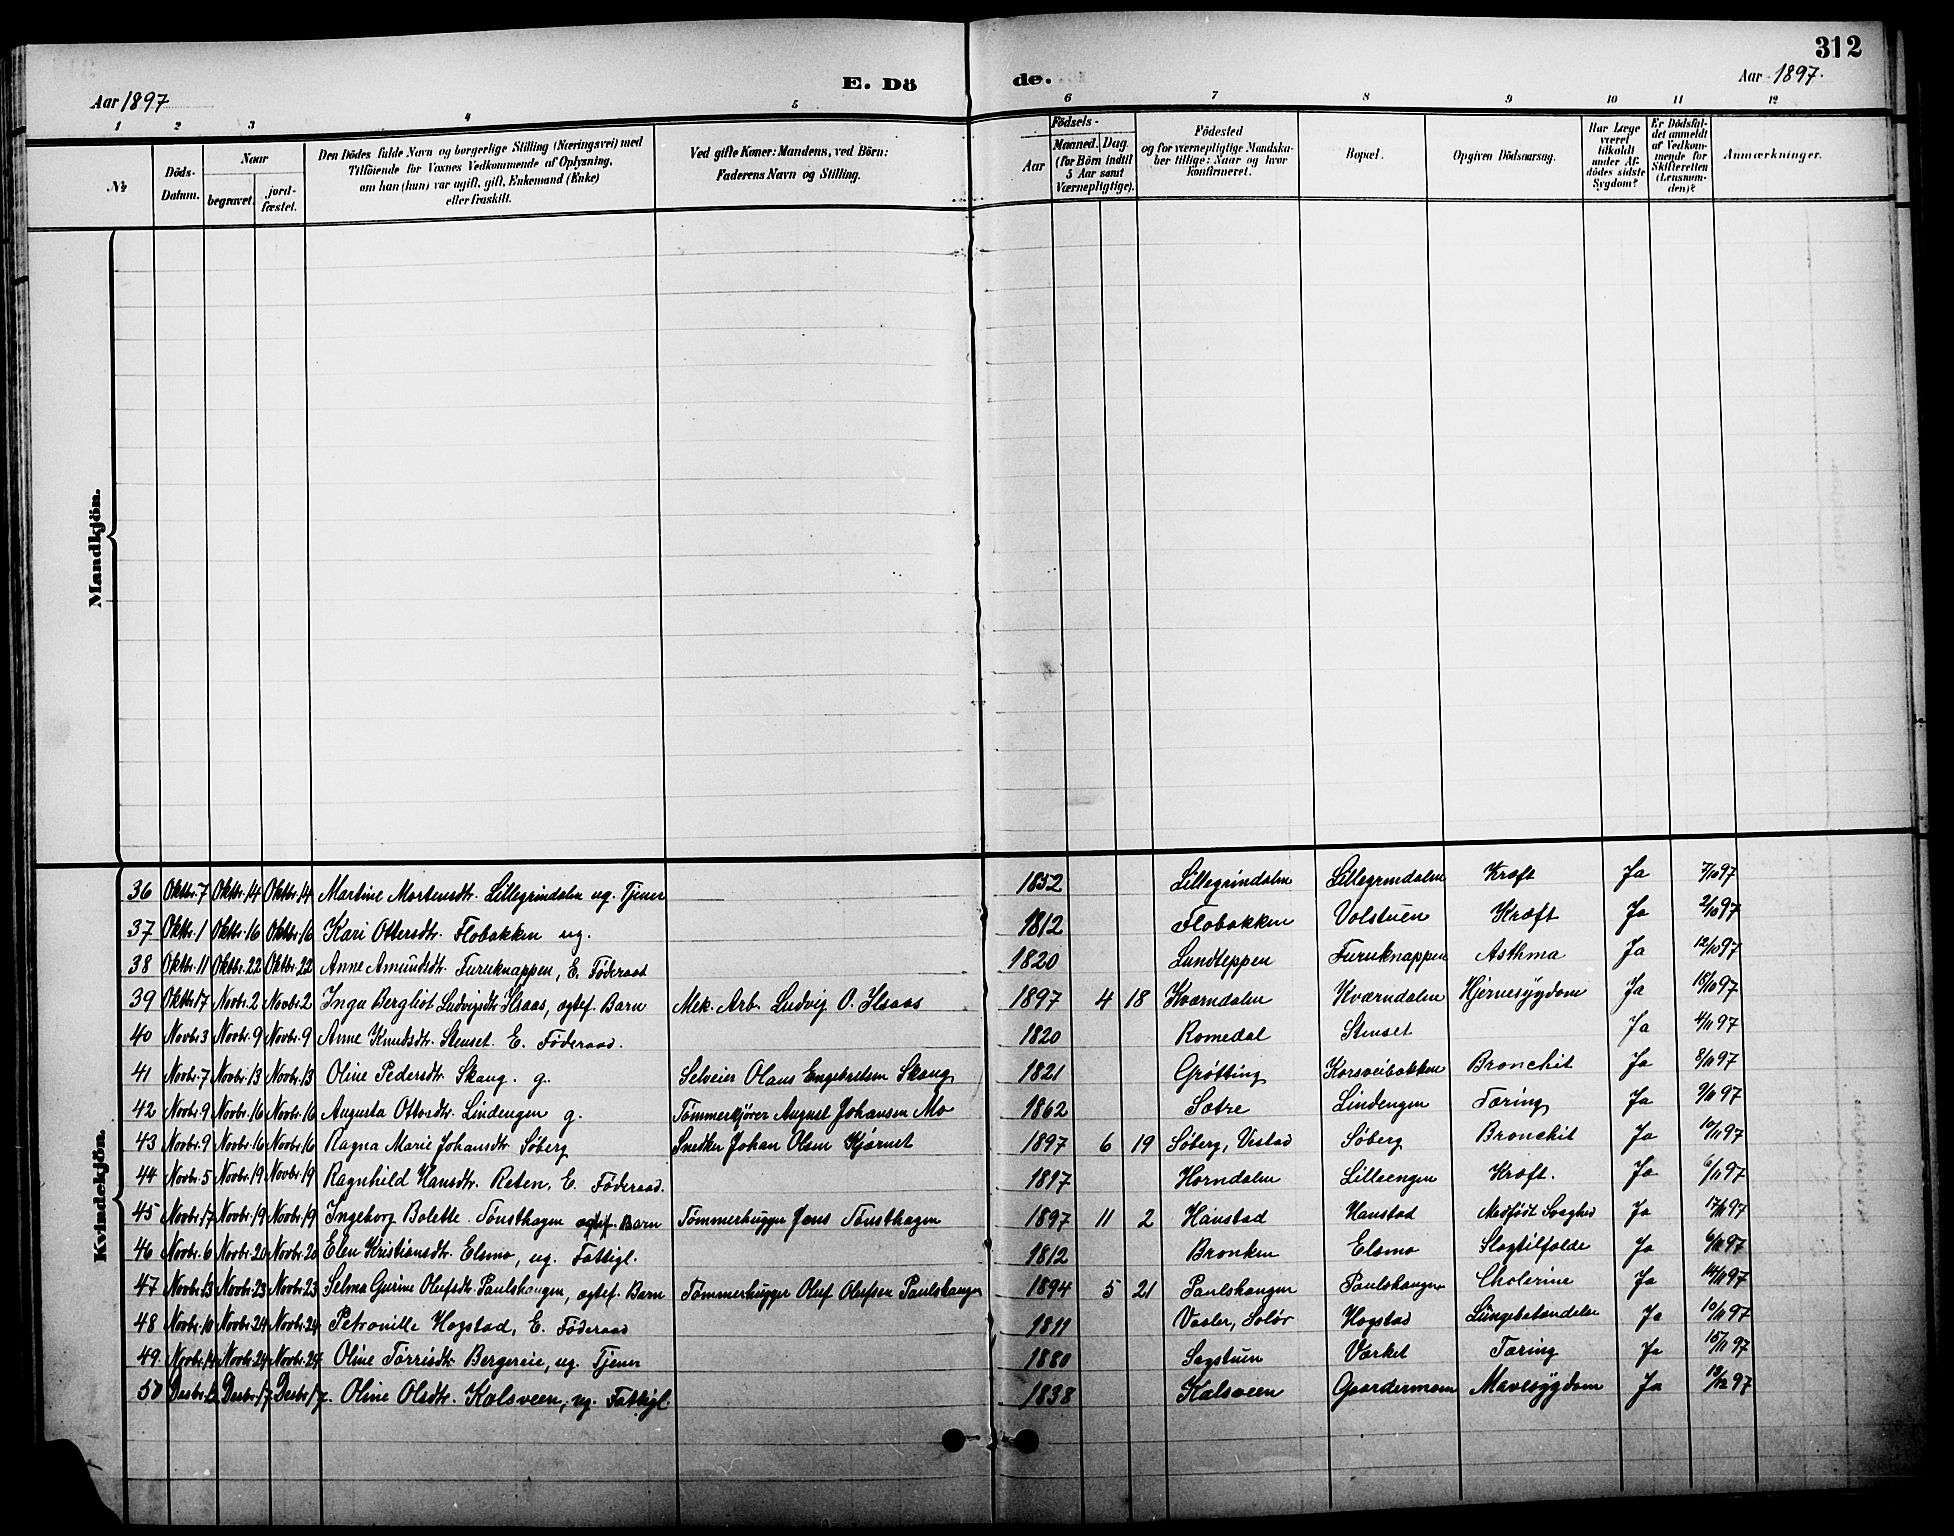 312
E. Dö de.
Aar 1897
Aar 1897.
1 2 3 4 5 6 7 8 9 10 11 12
No
Döds-Datum.
Naar
begravet.
jord-fæstet.
Den Dödes fulde Navn og borgerlige Stilling (Næringsvei) med
Tilföiende for Voxnes Vedkommende af Oplysning,
om han (hun) var ugift, gift, Enkemand (Enke)
eller fraskilt.
Ved gifte Koner: Mandens, ved Börn:
Faderens Navn og Stilling.
Födsels-
Aar
Maaned. Dag.
(for Börn indtil
5 Aar samt
Værnepligtige).
Födested
og for værnepligtige Mandska-
ber tillige: Naar og hvor
konfirmeret.
Bopæl.
Opgiven Dödsaarsag.
Har Læge
været
tilkaldt
under Af-
dödes sidste
Sygdom?
Er Dödsfal-
det anmeldt
af Vedkom-
mende for
Skifteretten
(Lensman-
den)?
Anmærkninger.
Mandkjön.
Kvindekjön.
36 Oktbr. 7 Oktbr. 14 Oktbr. 14 Martine Mortensdtr. Lillegrindalen ug. Tjener 1852 Lillegrindalen Lillegrindalen Kræft Ja 7/10 97
37 Oktbr. 1 Oktbr. 16 Oktbr. 16 Kari Ottersdtr. Flobakken ug. 1812 Flobakken Volstuen Kræft Ja 2/10 97
38 Oktbr. 11 Oktbr. 22 Oktbr. 22 Anne Amundsdtr. Furuknappen, E. Föderaad 1820 Lundteppen Furuknappen Asthma Ja 12/10 97
39 Oktbr. 17 Novbr. 2 Novbr. 2 Inga Bergliot Ludvigsdtr. Ilsaas, ogtef. Barn Mek. Arb. Ludvig O. Ilsaas 1897 4 18 Kværndalen Kværndalen Hjernesygdom Ja 18/10 97
40 Novbr. 3 Novbr. 9 Novbr. 9 Anne Knudsdtr. Stenset E. Föderaad. 1820 Romedal Stenset Ja 4/11 97
41 Novbr. 7 Novbr. 13 Novbr. 13 Oline Pedersdtr. Skaug. g. Selveier Olaus Engebretsen Skaug 1821 Grötting Korsveibakken Bronchit Ja 8/11 97
42 Novbr. 9 Novbr. 16 Novbr. 16 Augusta Ottosdtr. Lindengen g. Tömmerkjörer August Johansen Mo 1862 Sætre Lindengen Tæring Ja 9/11 97
43 Novbr. 9 Novbr. 16 Novbr. 16 Ragna Marie Johansdtr. Söberg Snedker Johan Olsen Kjærnet 1897 6 19 Söberg, Vestad Söberg Bronchit Ja 10/11 97
44 Novbr. 5 Novbr. 19 Novbr. 19 Ragnhild Hansdtr. Reten, E. Föderaad. 1817 Horndalen Lilleengen Kræft. Ja 6/11 97
45 Novbr. 17 Novbr. 19 Novbr. 19 Ingeborg Bolette Tönsthagen Barn Tömmerhugger Jens Tönsthagen 1897 11 2 Hanstad Hanstad Medfödt Svaghed Ja 17/11 97
46 Novbr. 6 Novbr. 20 Novbr. 20 Elen Kristiansdtr. Elsmo, ug. Fattigl. 1812 Bronken Elsmo Slagtilfælde Ja 6/11 97
47 Novbr. 13 Novbr. 23 Novbr. 23 Selma Gurine Olufsdtr. Paulshaugen, ogtef. Barn Tömmerhugger Oluf Olufsen Paulshaugen 1894 5 21 Paulshaugen Paulshaugen Cholerine Ja 14/11 97
48 Novbr. 10 Novbr. 24 Novbr. 24 Petronille Hogstad, E. Föderaad 1811 Vaaler, Solör Hogstad Lungebetændelse Ja 10/11 97
49 Novbr. 14 Novbr. 24 Novbr. 24 Oline Törrisdtr. Bergereie, ug. Tjener 1880 Sagstuen Værket Tæring Ja 15/11 97
50 Desbr. Desbr. 17 Desbr. 17 Oline Olsdtr. Kalsveen, ug. Fattigl. 1838 Kalsveen Gaardermoen Mavesygdom Ja 97